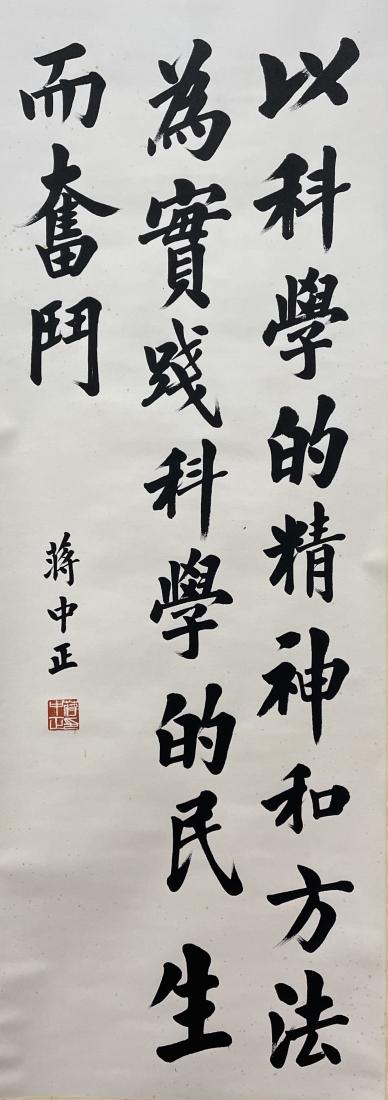 以科學的精神和方法
為實踐科學的民生
而奮鬥
蔣中正
蔣中正印